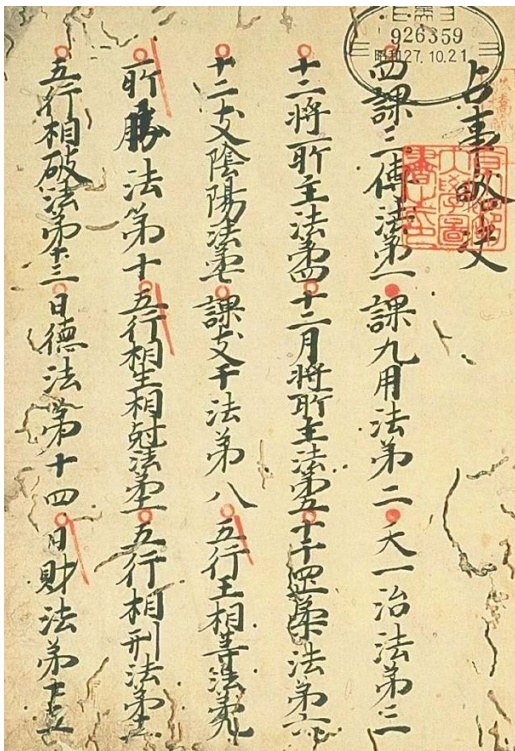 926359
昭和27.10.21
占事略决
四課三傳法第一 課九用法第二 天一治法第三
十二將所主法第四 十二月將所主法第五 十干罡柔法第六
十二支陰陽法第七 課支干法第八 五行王相等法第九
所勝法第十 五行相生相尅法第十一 五行相刑法第十二
五行相破法第十三 日德法第十四 日財法第十五